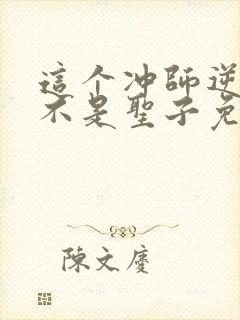 這个冲師逆
不是聖子兔
陳文慶